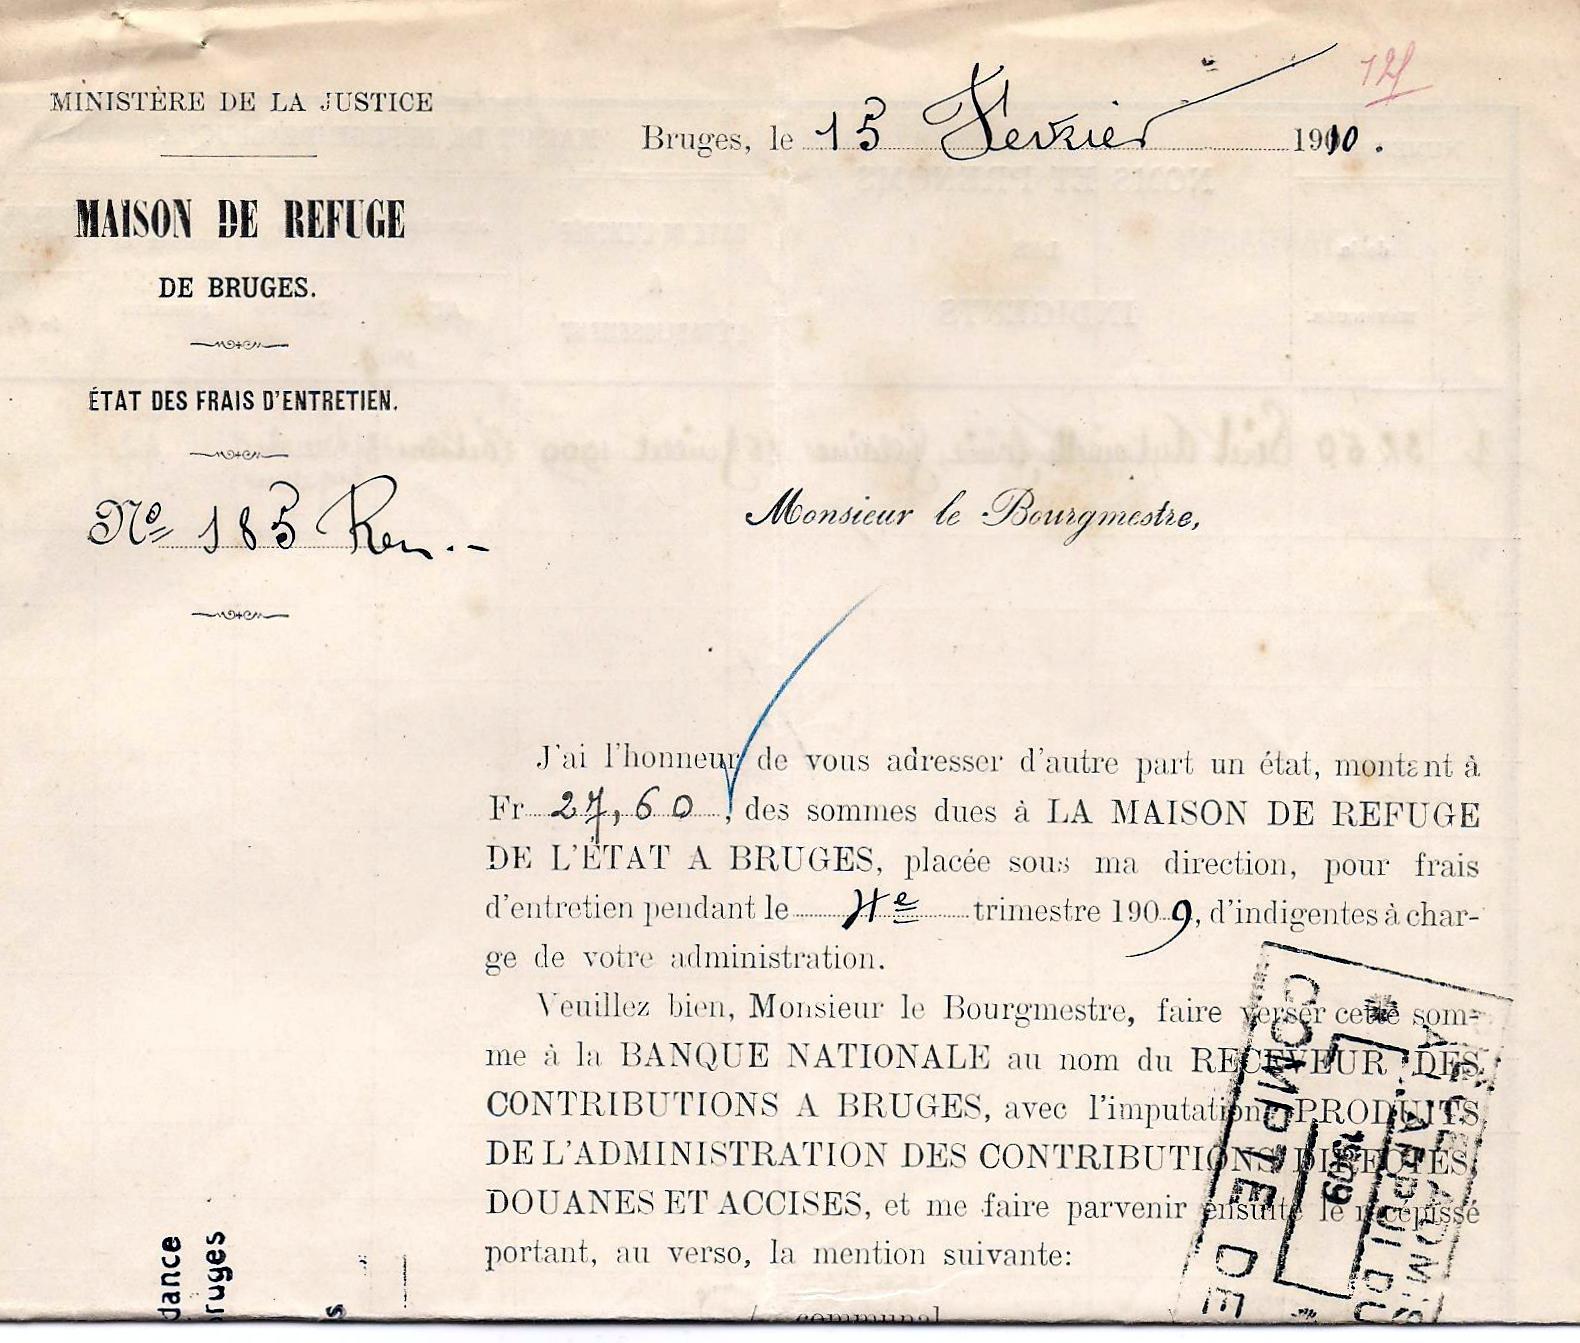 MINISTÈRE DE LA JUSTICE
Bruges, le 15 Fevrier 1910.
MAISON DE REFUGE
DE BRUGES.
ÉTAT DES FRAIS D'ENTRETIEN.
Nº 185 Ren.
Monsieur le Bourgmestre,
J'ai l'honneur de vous adresser d'autre part un état, montant à
Fr 27,60, des sommes dues à LA MAISON DE REFUGE
DE L'ÉTAT A BRUGES, placée sous ma direction, pour frais
d'entretien pendant le 4e trimestre 1909, d'indigentes à char-
ge de votre administration.
Veuillez bien, Monsieur le Bourgmestre, faire verser cette som-
me à la BANQUE NATIONALE au nom du RECEVEUR DES
CONTRIBUTIONS A BRUGES, avec l'imputation: PRODUITS
DE L'ADMINISTRATION DES CONTRIBUTIONS DIRECTES,
DOUANES ET ACCISES, et me faire parvenir ensuite le récépissé
portant, au verso, la mention suivante:
communal
COMPTE DE
1909
A L'APPUI DU
dance
ruges